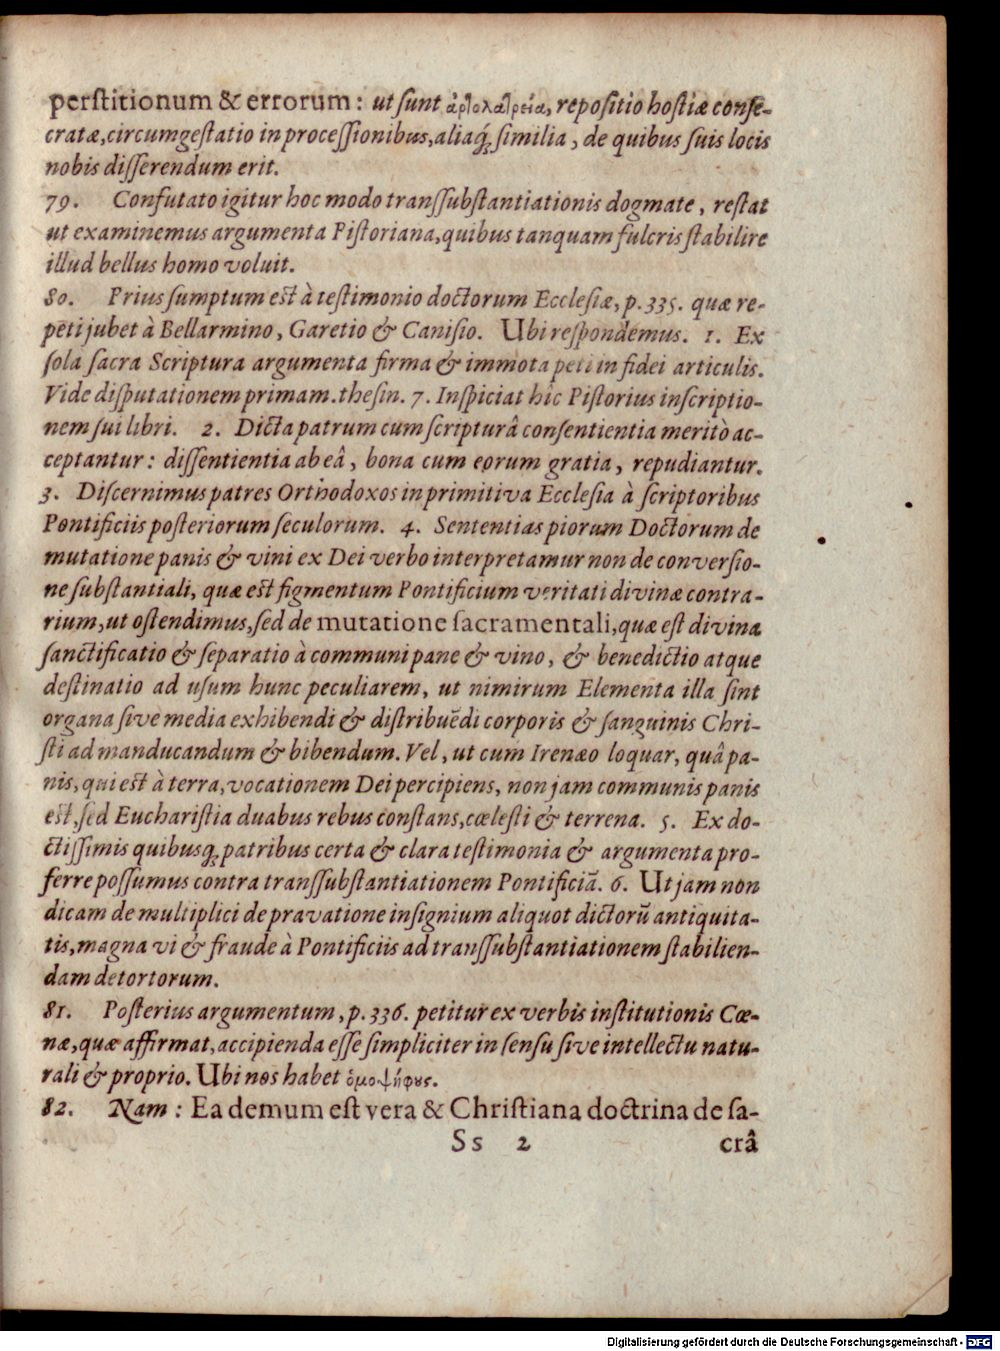 perſtitionum & errorum : ut ſunt ἀρτολατρεία, repoſitio hoſtiæ conſe-
cratæ, circumgeſtatio in proceſſionibus, aliaq́; ſimilia, de quibus ſuis locis
nobis diſſerendum erit.
79. Confutato igitur hoc modo transſubſtantiationis dogmate, reſtat
ut examinemus argumenta Piſtoriana, quibus tanquam fulcris ſtabilire
illud bellus homo voluit.
80. Prius ſumptum eſt à teſtimonio doctorum Eccleſiæ, p. 335. quæ re-
peti jubet à Bellarmino, Garetio & Caniſio. Ubi reſpondemus. 1. Ex
ſola ſacra Scriptura argumenta firma & immota peti in fidei articulis.
Vide diſputationem primam. theſin. 7. Inſpiciat hîc Piſtorius inſcriptio-
nem ſui libri. 2. Dicta patrum cum ſcripturâ conſentientia meritò ac-
ceptantur : diſſentientia ab eâ, bona cum eorum gratia, repudiantur.
3. Diſcernimus patres Orthodoxos in primitiva Eccleſia à ſcriptoribus
Pontificiis poſteriorum ſeculorum. 4. Sententias piorum Doctorum de
mutatione panis & vini ex Dei verbo interpretamur non de converſio-
ne ſubſtantiali, quæ eſt figmentum Pontificium veritati divinæ contra-
rium, ut oſtendimus, ſed de mutatione ſacramentali, quæ eſt divina
ſanctificatio & ſeparatio à communi pane & vino, & benedictio atque
deſtinatio ad uſum hunc peculiarem, ut nimirum Elementa illa ſint
organa ſive media exhibendi & diſtribuẽdi corporis & ſanguinis Chri-
ſti ad manducandum & bibendum. Vel, ut cum Irenæo loquar, quâ pa-
nis, qui eſt à terra, vocationem Dei percipiens, non jam communis panis
eſt, ſed Euchariſtia duabus rebus conſtans, cœleſti & terrena. 5. Ex do-
ctiſſimis quibusq; patribus certa & clara teſtimonia & argumenta pro-
ferre poſſumus contra transſubſtantiationem Pontificiã. 6. Ut jam non
dicam de multiplici depravatione inſignium aliquot dictorũ antiquita-
tis, magna vi & fraude à Pontificiis ad transſubſtantiationem ſtabilien-
dam detortorum.
81. Poſterius argumentum, p. 336. petitur ex verbis inſtitutionis Cœ-
næ, quæ affirmat, accipienda eſſe ſimpliciter in ſenſu ſive intellectu natu-
rali & proprio. Ubi nos habet ὁμοψήφους.
82. Nam : Ea demum eſt vera & Chriſtiana doctrina de ſa-
Ss 2 crâ
Digitalisierung gefördert durch die Deutsche Forschungsgemeinschaft - DFG